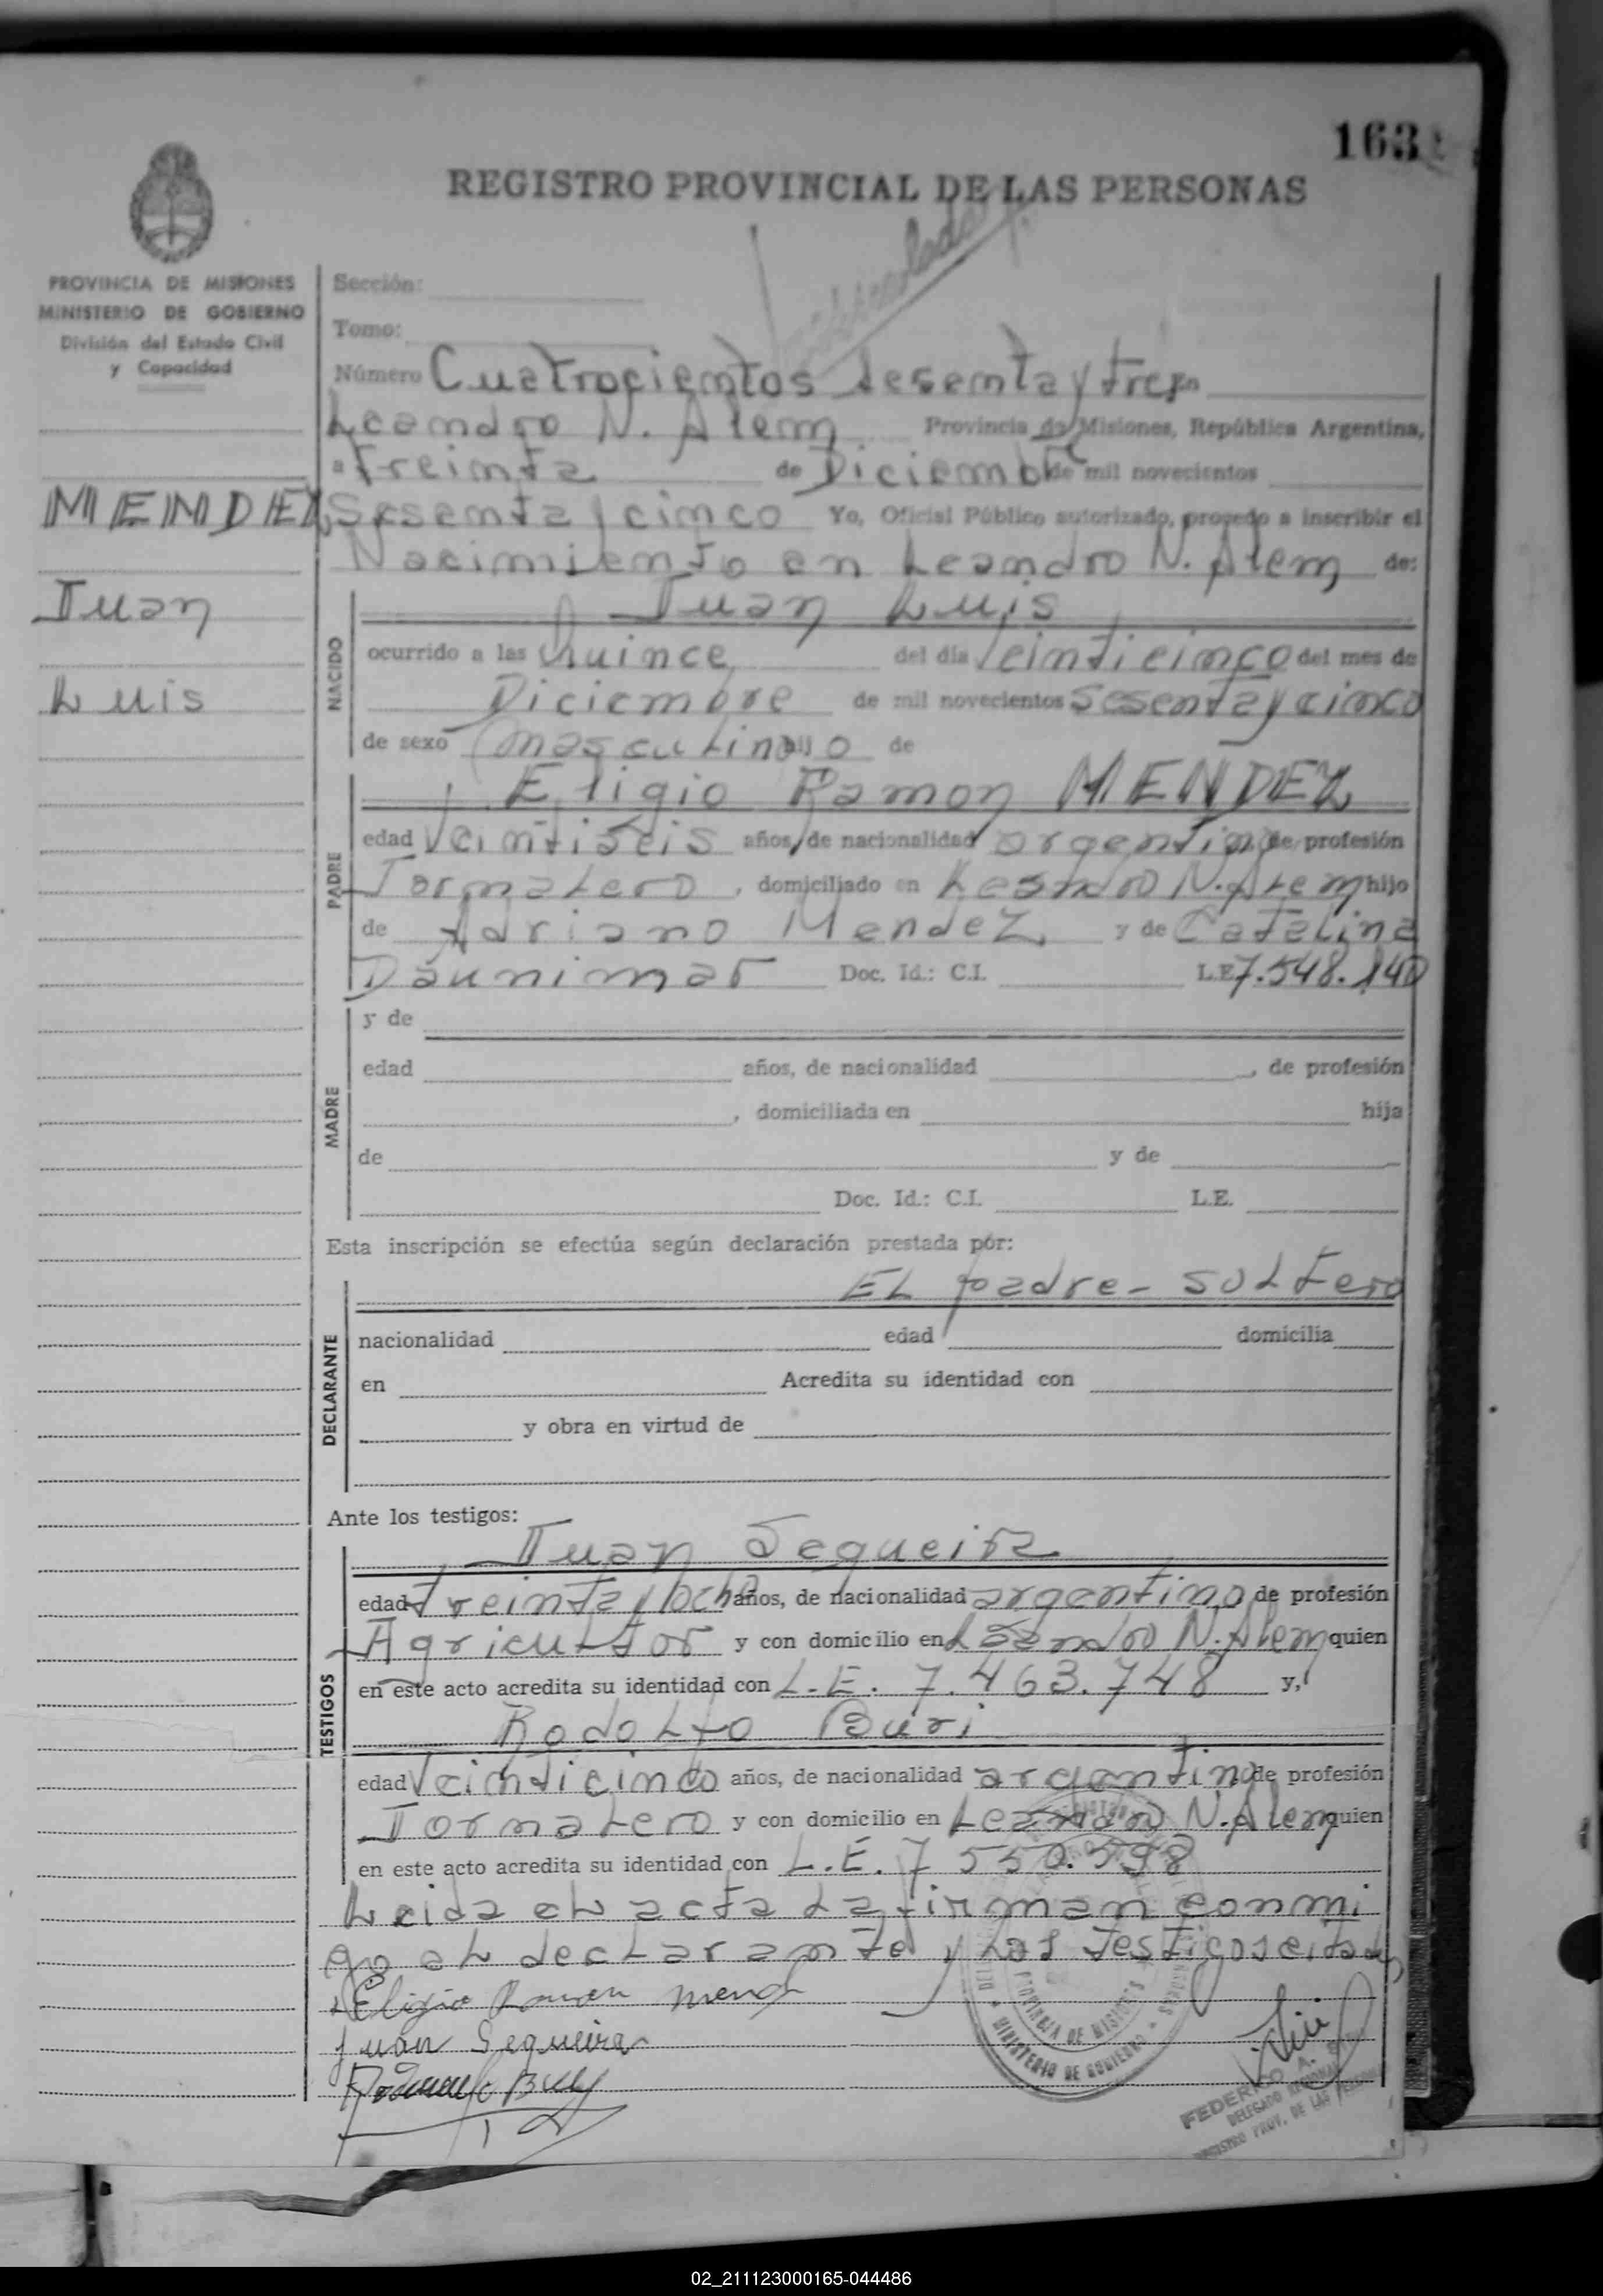 163
REGISTRO PROVINCIAL DE LAS PERSONAS
PROVINCIA DE MISIONES
MINISTERIO DE GOBIERNO
División del Estado Civil
y Capacidad
MENDEZ
Juan
Luis
Sección:
Tomo:
Número Cuatrocientos sesenta y tres en
Leandro N. Alem Provincia de Misiones, República Argentina,
a Treinta de Diciembre de mil novecientos
Sesenta y cinco Yo, Oficial Público autorizado, procedo a inscribir el
Nacimiento en Leandro N. Alem de:
NACIDO
Juan Luis
ocurrido a las quince del día Veinticinco del mes de
Diciembre de mil novecientos sesenta y cinco
de sexo masculino hijo de
PADRE
Eligio Ramon MENDEZ
edad Veintiseis años, de nacionalidad argentino de profesión
Jornalero, domiciliado en Leandro N. Alem hijo
de Adriano Mendez y de Catalina
Daunimar Doc. Id.: C.I. L.E. 7.548.140
MADRE
y de
edad años, de nacionalidad , de profesión
, domiciliada en hija
de y de
Doc. Id.: C.I. L.E.
Esta inscripción se efectúa según declaración prestada por:
DECLARANTE
EL padre - soltero
nacionalidad edad domicilia
en Acredita su identidad con
y obra en virtud de
Ante los testigos:
TESTIGOS
Juan Sequeira
edad treinta y ocho años, de nacionalidad argentino de profesión
Agricultor y con domicilio en Leandro N. Alem quien
en este acto acredita su identidad con L.E. 7.463.748 y,
Rodolfo Buri
edad Veinticinco años, de nacionalidad argentino de profesión
Jornalero y con domicilio en Leandro N. Alem quien
en este acto acredita su identidad con L.E. 7550.598
Leida el acta la firman conmi
go el declarante y los testigos citados
Eligio Ramon
Juan Sequeira
PROVINCIA DE MISIONES
MINISTERIO DE GOBIERNO
FEDERICO A.
DELEGADO REGIONAL
REGISTRO PROV. DE LAS
02_211123000165-044486